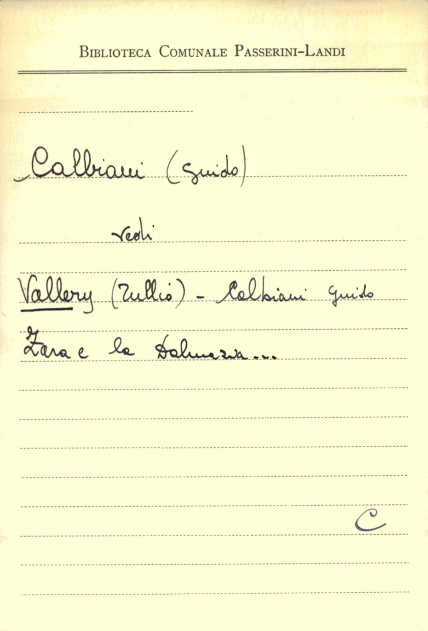 BIBLIOTECA COMUNALE PASSERINI-LANDI
Calbiani (Guido)
vedi
Vallery (Tullio) - Calbiani Guido
Zara e la Dalmazia...
C